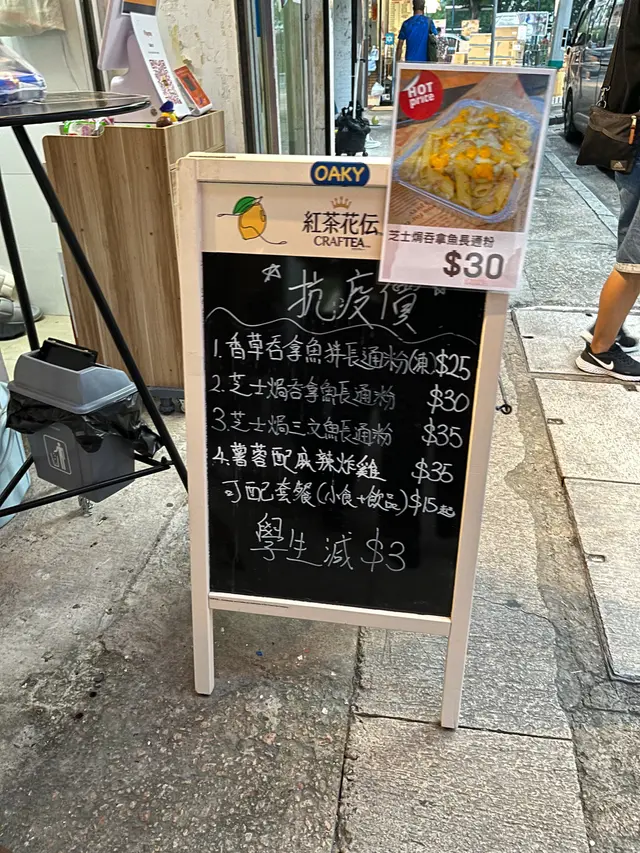 OAKY
HOT
price
紅茶花伝
CRAFTEA
芝士焗吞拿魚長通粉
$30
抗疫價
1. 香草吞拿魚拼長通粉(凍)$25
2. 芝士焗吞拿魚長通粉 $30
3. 芝士焗三文魚長通粉 $35
4. 薯蓉配麻辣炸雞 $35
可配套餐(小食+飲品)$15起
學生減 $3